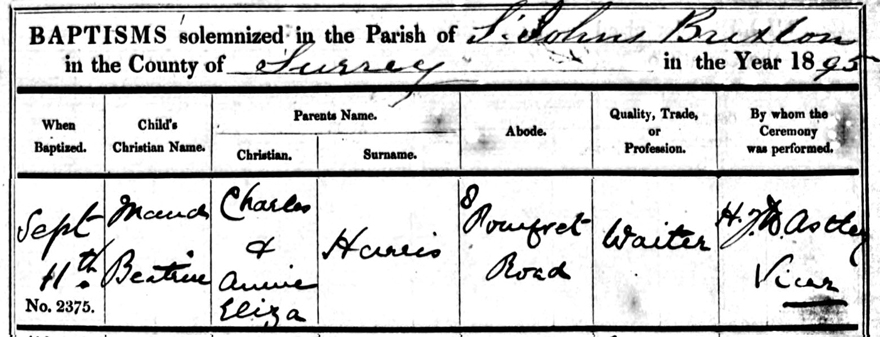 BAPTISMS solemnized in the Parish of St. Johns Brixton
in the County of Surrey in the Year 1895
When Baptized.
Child's Christian Name.
Parents Name.
Christian.
Surname.
Abode.
Quality, Trade, or Profession.
By whom the Ceremony was performed.
Sept
11th
No. 2375.
Maud
Beatrice
Charles
&
Annie
Eliza
Harris
8
Pomfret
Road
Waiter
H. J. D. Astley
Vicar